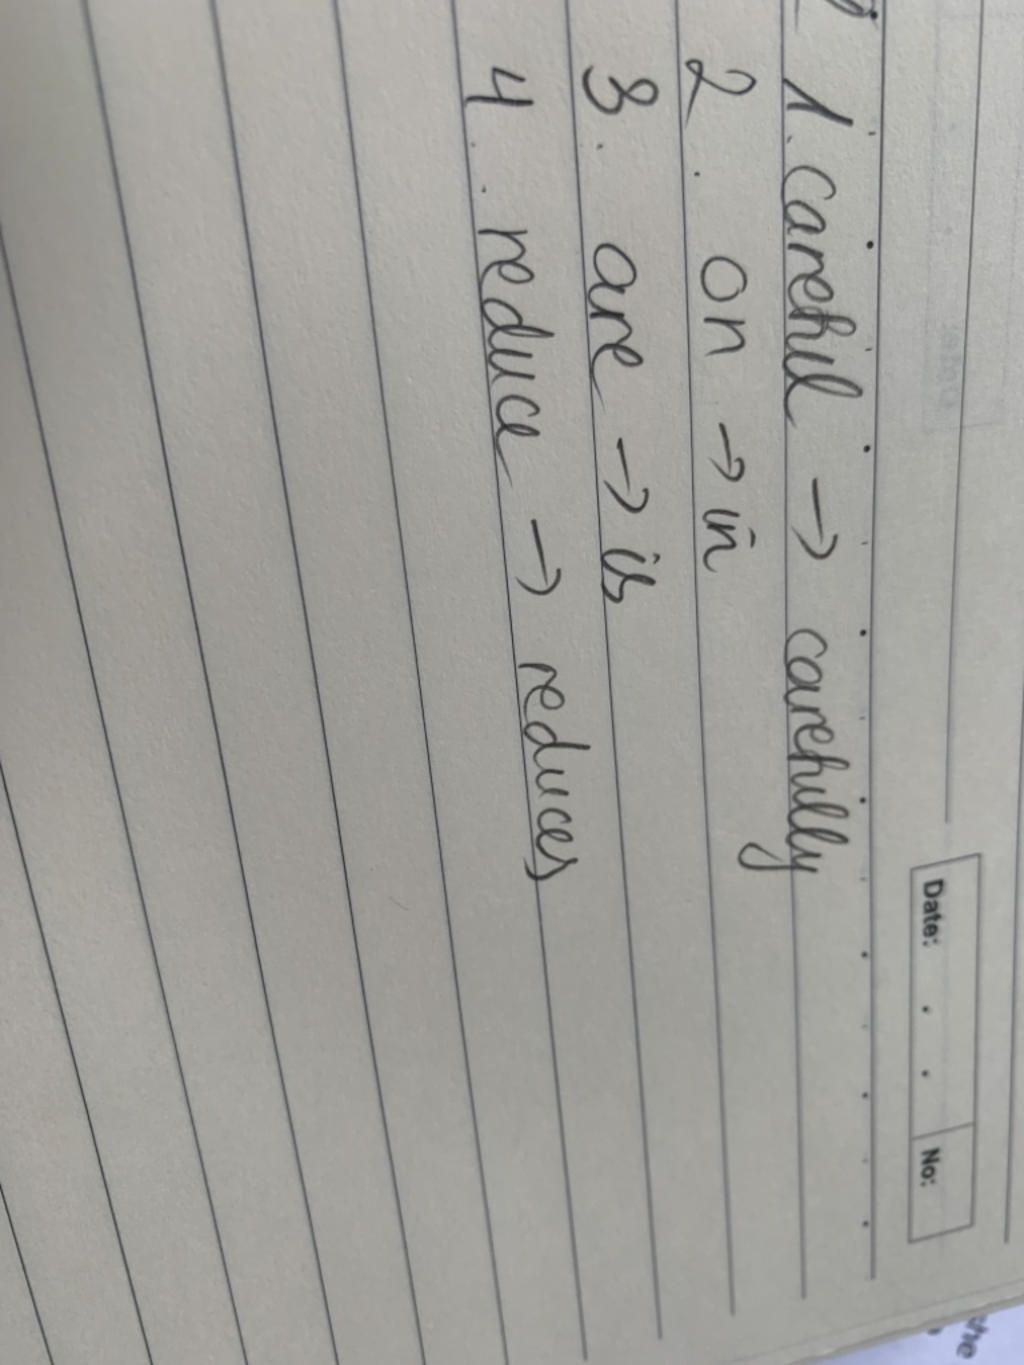 Date: . . No:
1. careful → carefully
2. on → in
3. are → is
4. reduce → reduces
the